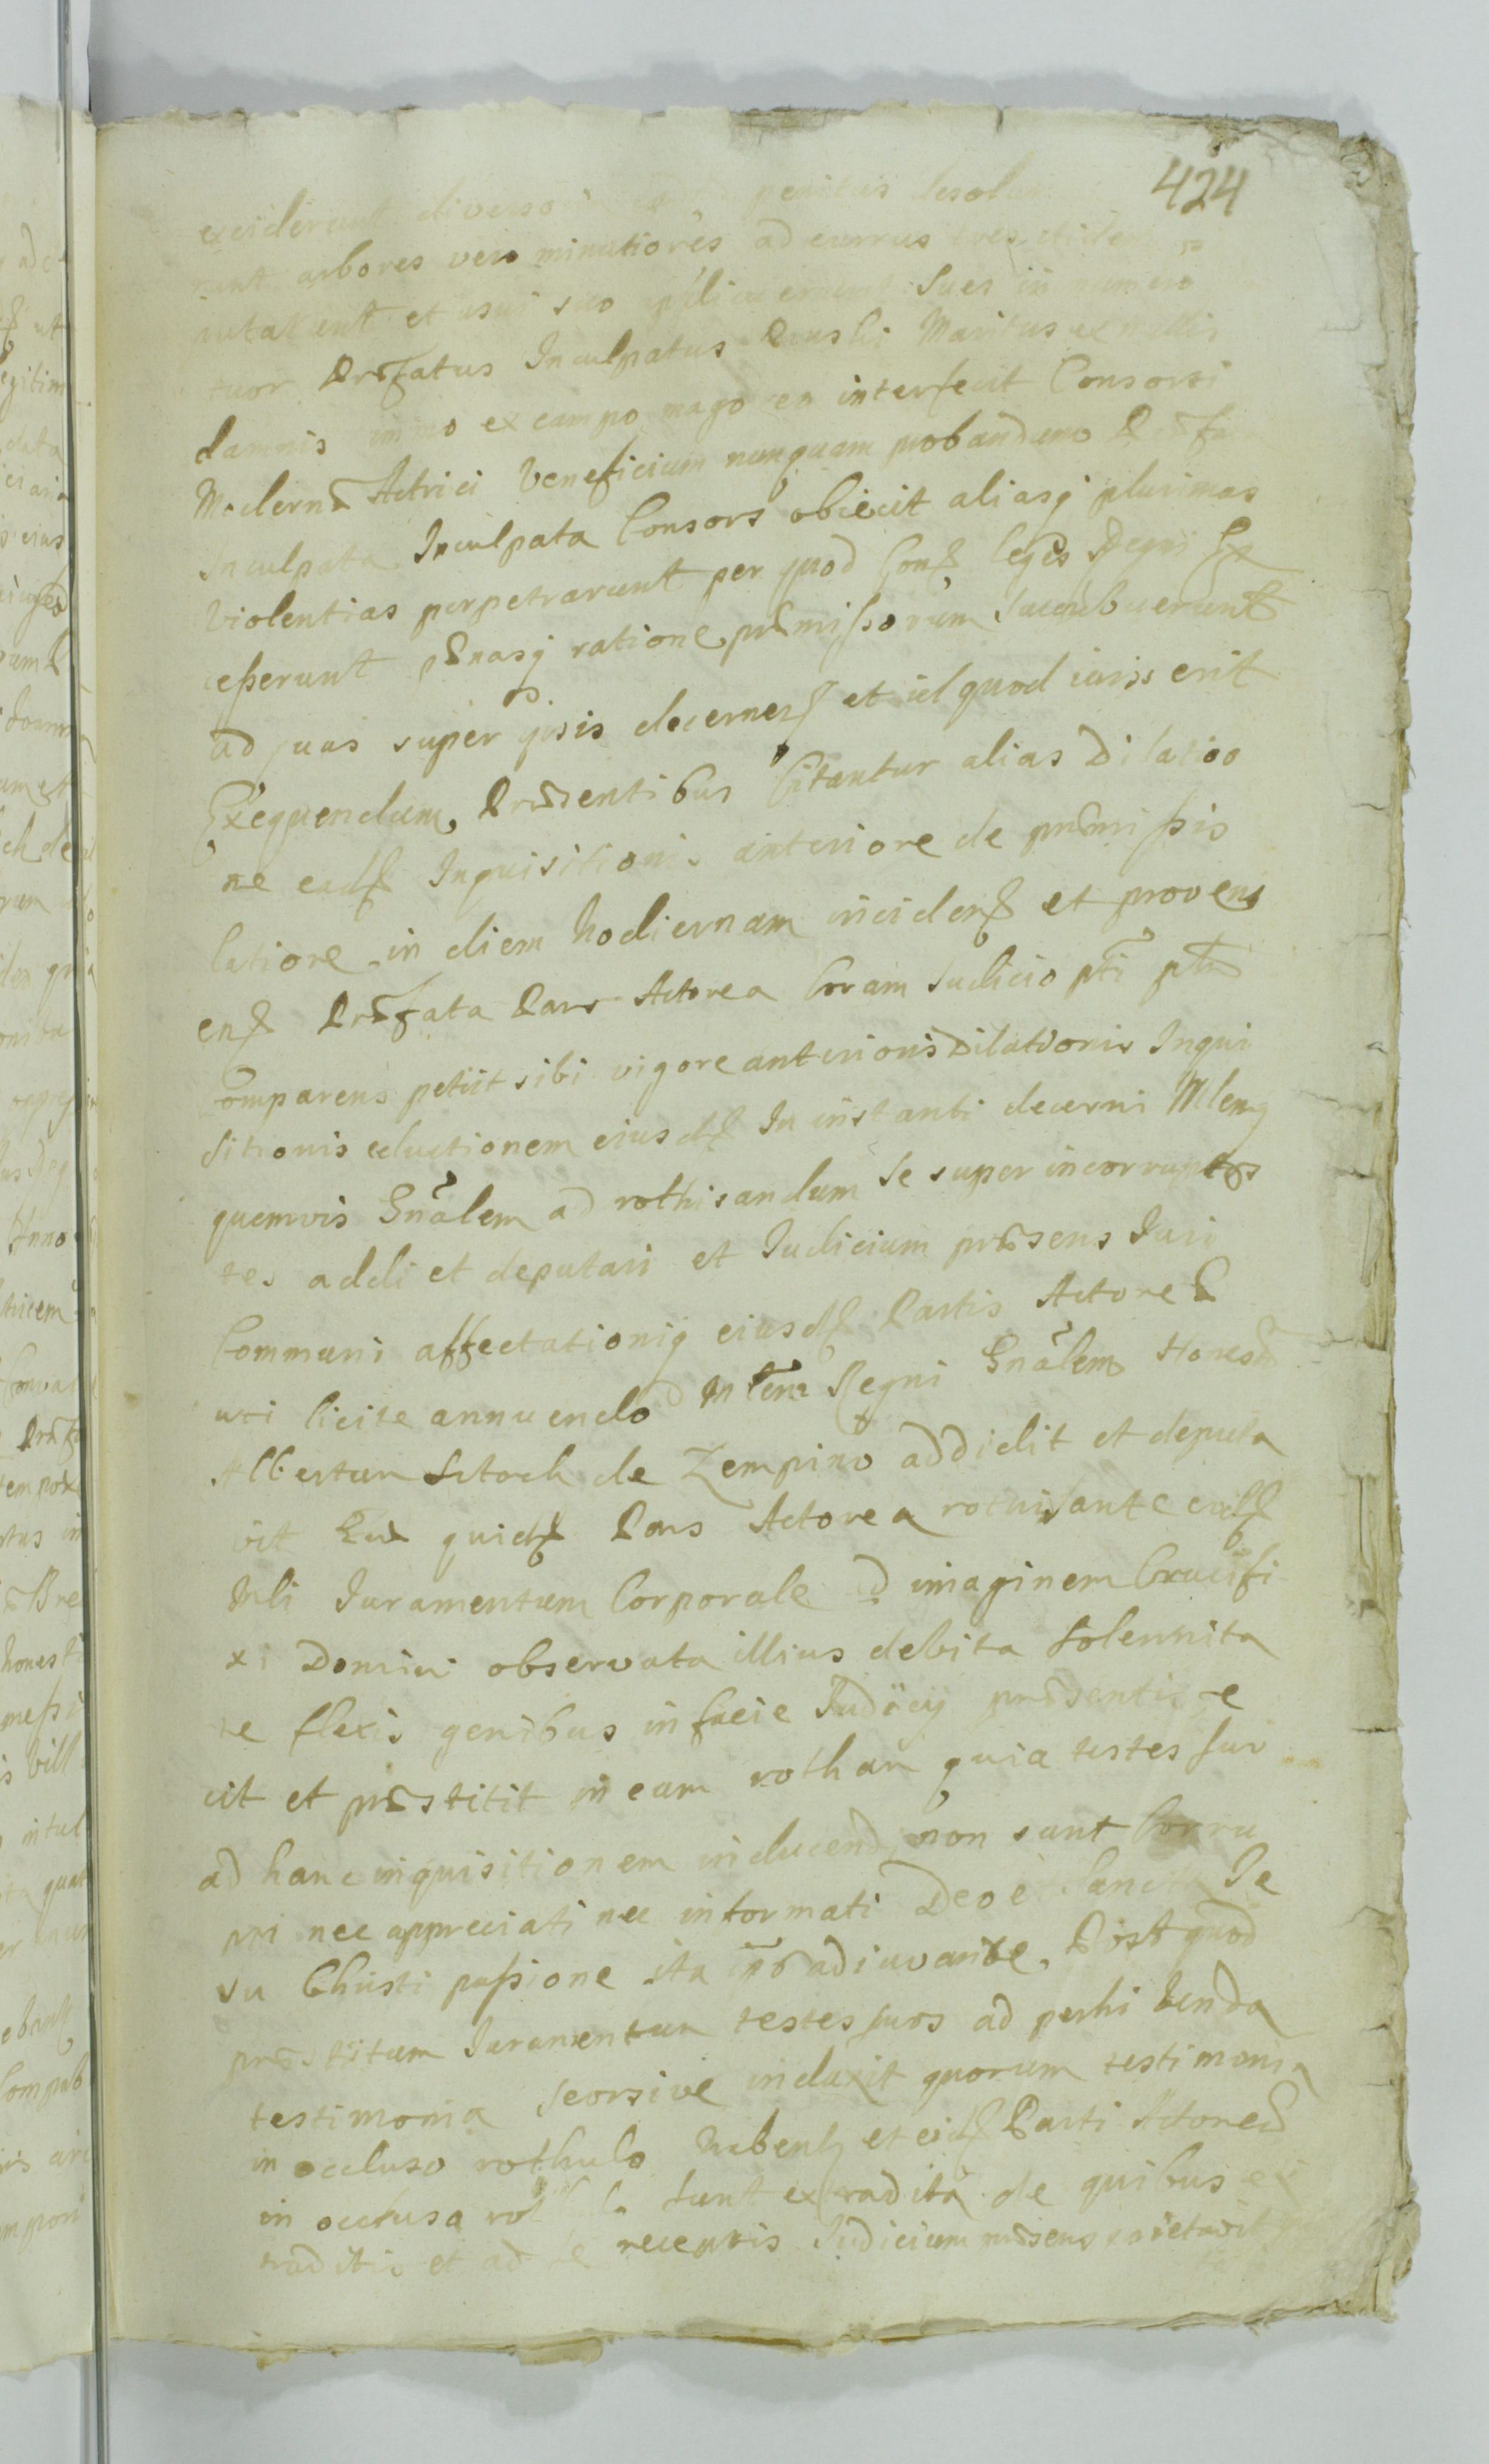 424
exciderunt diverso penitus desola
runt arbores vero minutiores ad currus tres
et usui suo applicaverunt Sues in numero
tuor Præfatus Inculpatus Maritus ex nullis
damnis immo ex campo interfecit Consorti
Modernæ Actrici Veneficium nunquam probandum
Inculpata Inculpata Consors obiecit aliasq plurimas
violentias perpetrarunt per quod Leges Regni Ex
cesserunt pænasq ratione præmissorum succubuerunt
ad quas super ipsis decernen et id quod iuris erit
Exequendum, Præsentibus Citantur alias Dilatio
ne ead Inquisitionis anteriore de præmissis
latiore in diem hodiernam inciden et proveni
en Præfata Pars Actorea Coram Iudicio pnti pntr
Comparens petiit sibi vigore anterioris Dilationis Inqui
sitionis eductionem eiusd In instanti decerni Mlemq
quemvis Gnãlem ad rothisandum se super incorruptos
tes addi et deputari et Iudicium præsens Iuri
Communi affectationiq eiusd Partis Actoreæ
uti licite annuendo Mlem Regni Gnãlem Honestum
Albertum de Zempino addidit et deputa
vit Quæ quid Pars Actorea rothisante ead
Mli Iuramentum Corporale ad imaginem Crucifi
xi Domini observata illius debita solennita
te flexis genibus in facie Iudicij præsentis fe
cit et præstitit in eam rotham quia testes sui
ad hanc inquisitionem inducend non sunt Corru
pti nec appreciati nec informati Deo et Sancta Ie
su Christi passione ita adiuvante. Post quod
præstitum Iuramentum testes suos ad perhibenda
testimonia seorsive induxit quorum testimonia
in occluso rothulo habent et eid Parti Actoreæ
in occlusa sunt extradita de quibus ex
traditis et ad se receptis Iudicium præsens